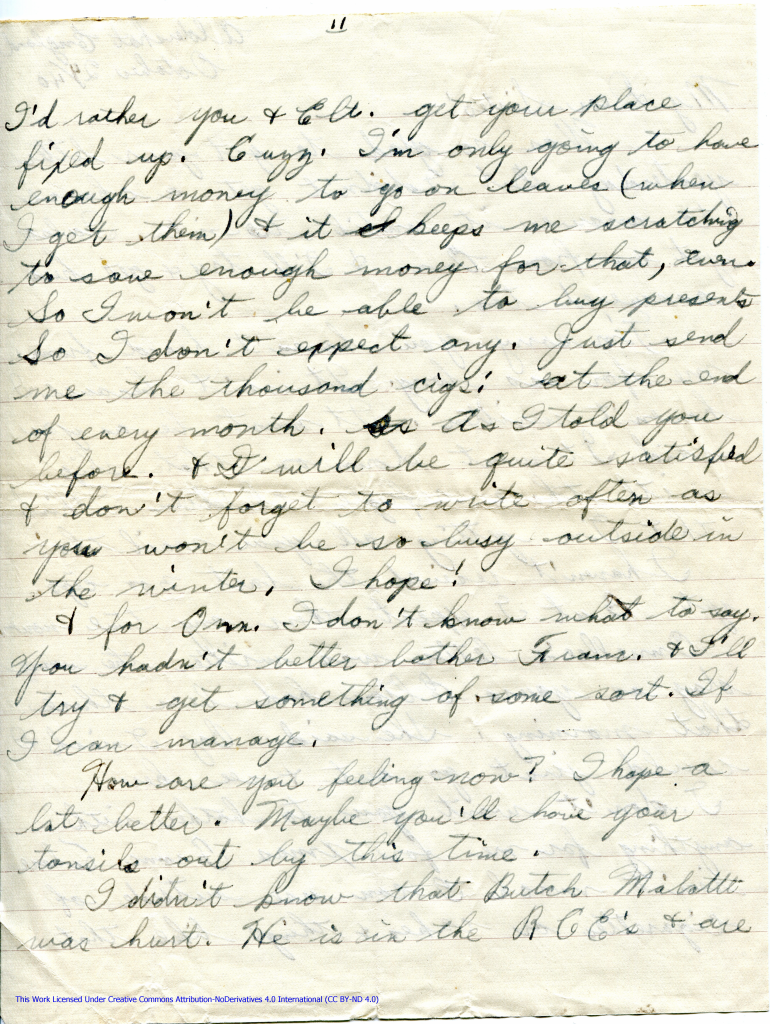 11
I'd rather you & Elt. get your place
fixed up. Cuzz. I'm only going to have
enough money to go on leaves (when
I get them) & it keeps me scratching
to save enough money for that, even.
So I won't be able to buy presents
So I don't expect any. Just send
me the thousand cigs. at the end
of every month. As I told you
before. & I will be quite satisfied
& don't forget to write often as
you won't be so busy outside in
the winter, I hope!
& for Onn. I don't know what to say.
You hadn't better bother Fram. & I'll
try & get something of some sort. If
I can manage.
How are you feeling now? I hope a
lot better. Maybe you'll have your
tonsils out by this time.
I didn't know that Butch Malott
was hurt. He is in the R C E's & are
This Work Licensed Under Creative Commons Attribution-NoDerivatives 4.0 International (CC BY-ND 4.0)